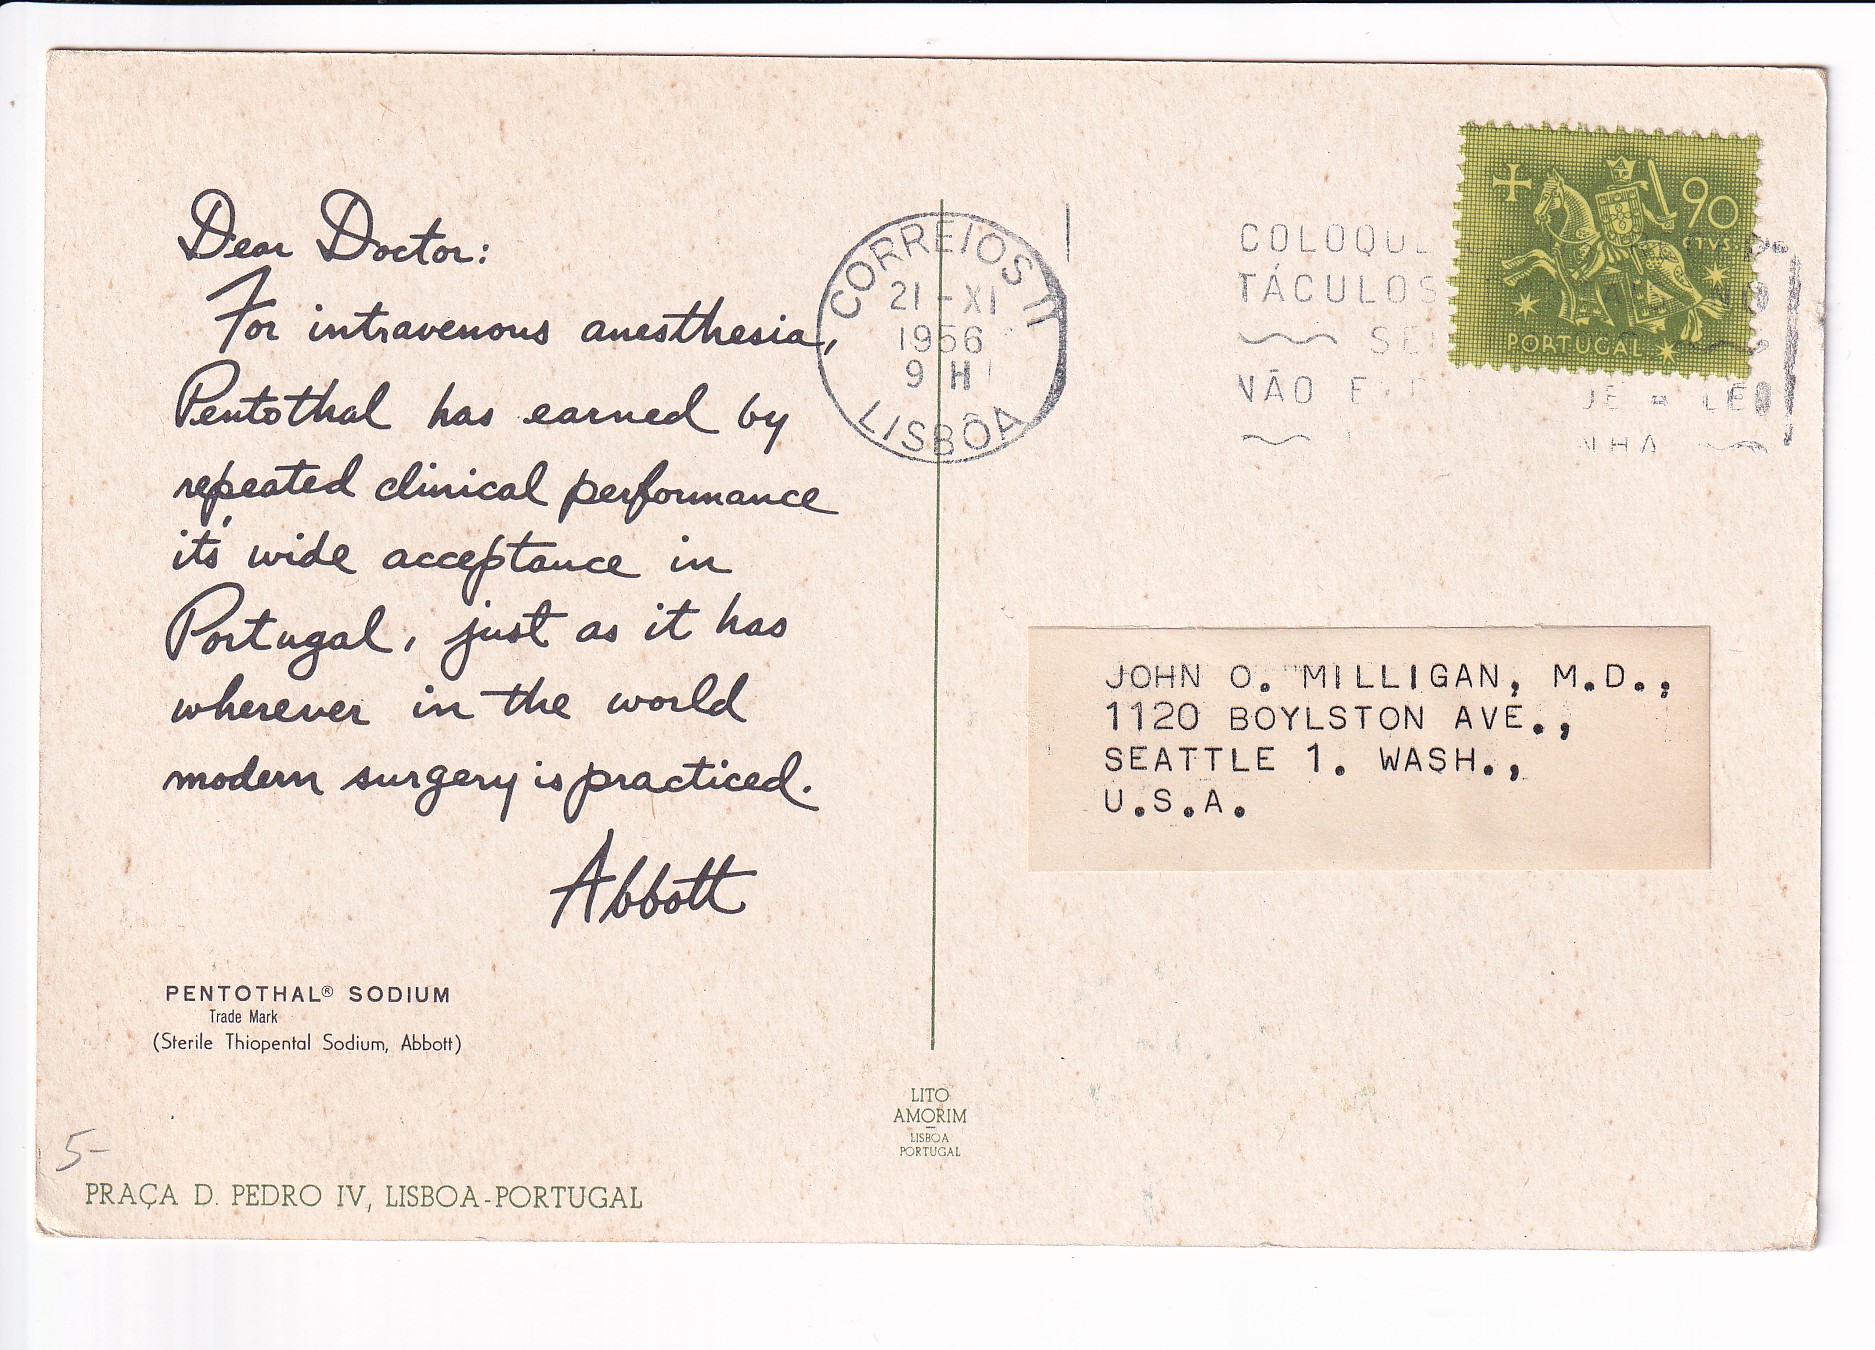 Dear Doctor:
For intravenous anesthesia,
Pentothal has earned by
repeated clinical performance
it's wide acceptance in
Portugal, just as it has
wherever in the world
modern surgery is practiced.
Abbott
PENTOTHAL® SODIUM
Trade Mark
(Sterile Thiopental Sodium, Abbott)
5-
PRAÇA D. PEDRO IV, LISBOA-PORTUGAL
CORREIOS
21-XI
1956
9 H
LISBÔA
LITO
AMORIM
LISBOA
PORTUGAL
90
CTVS.
PORTUGAL
COLOQU
TÁCULOS
NÃO
JOHN O. MILLIGAN, M.D.,
1120 BOYLSTON AVE.,
SEATTLE 1. WASH.,
U.S.A.